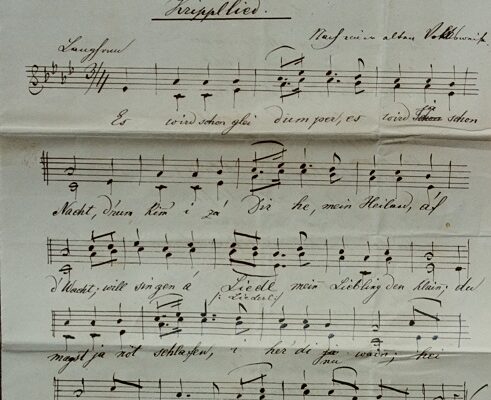 Krippllied.
Nach einer alten Volksweise.
Langsam
3/4
Es wird schon glei dumper, es wird schon schon
Nacht, drum kim i zá Dir he, mein Heiland, áf
d'Wacht; will singen á Liedl mein Liebling den klein; du
(: Liederl :)
magst ja nöt schlafen, i hör di nu wein; hei